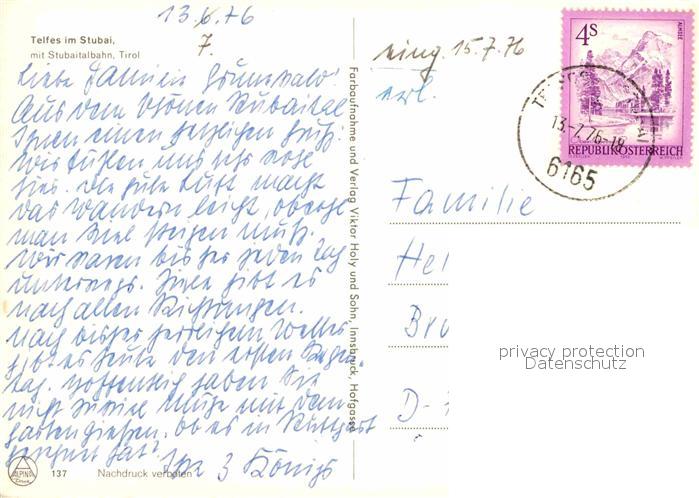 13.6.76
7.
Telfes im Stubai,
mit Stubaitalbahn, Tirol
Liebe Familie Grünwald!
Aus dem schönen Stubaital
Ihnen einen herzlichen Gruß.
Wir fühlen uns sehr wohl
hier. Die gute Luft macht
das Wandern leicht, obwohl
man viel steigen muß.
Wir waren bisher jeden Tag
unterwegs. Ziele gibt es
nach allen Richtungen.
Nach bisher herrlichem Wetter
gibt es heute den ersten Regen-
tag. Hoffentlich haben Sie
nicht zuviel Mühe mit dem
Gartengießen. Ob es in Stuttgart
geregnet hat?
Ihre 3 Königs
ALPINA
137 Nachdruck verboten
Farbaufnahme und Verlag Viktor Holy und Sohn, Innsbruck, Hofgasse
eing. 15.7.76
erl.
4S
ALMSEE
REPUBLIK ÖSTERREICH
13.-7.76-18
6165
Familie
Hei
Bru
D-7
privacy protection
Datenschutz